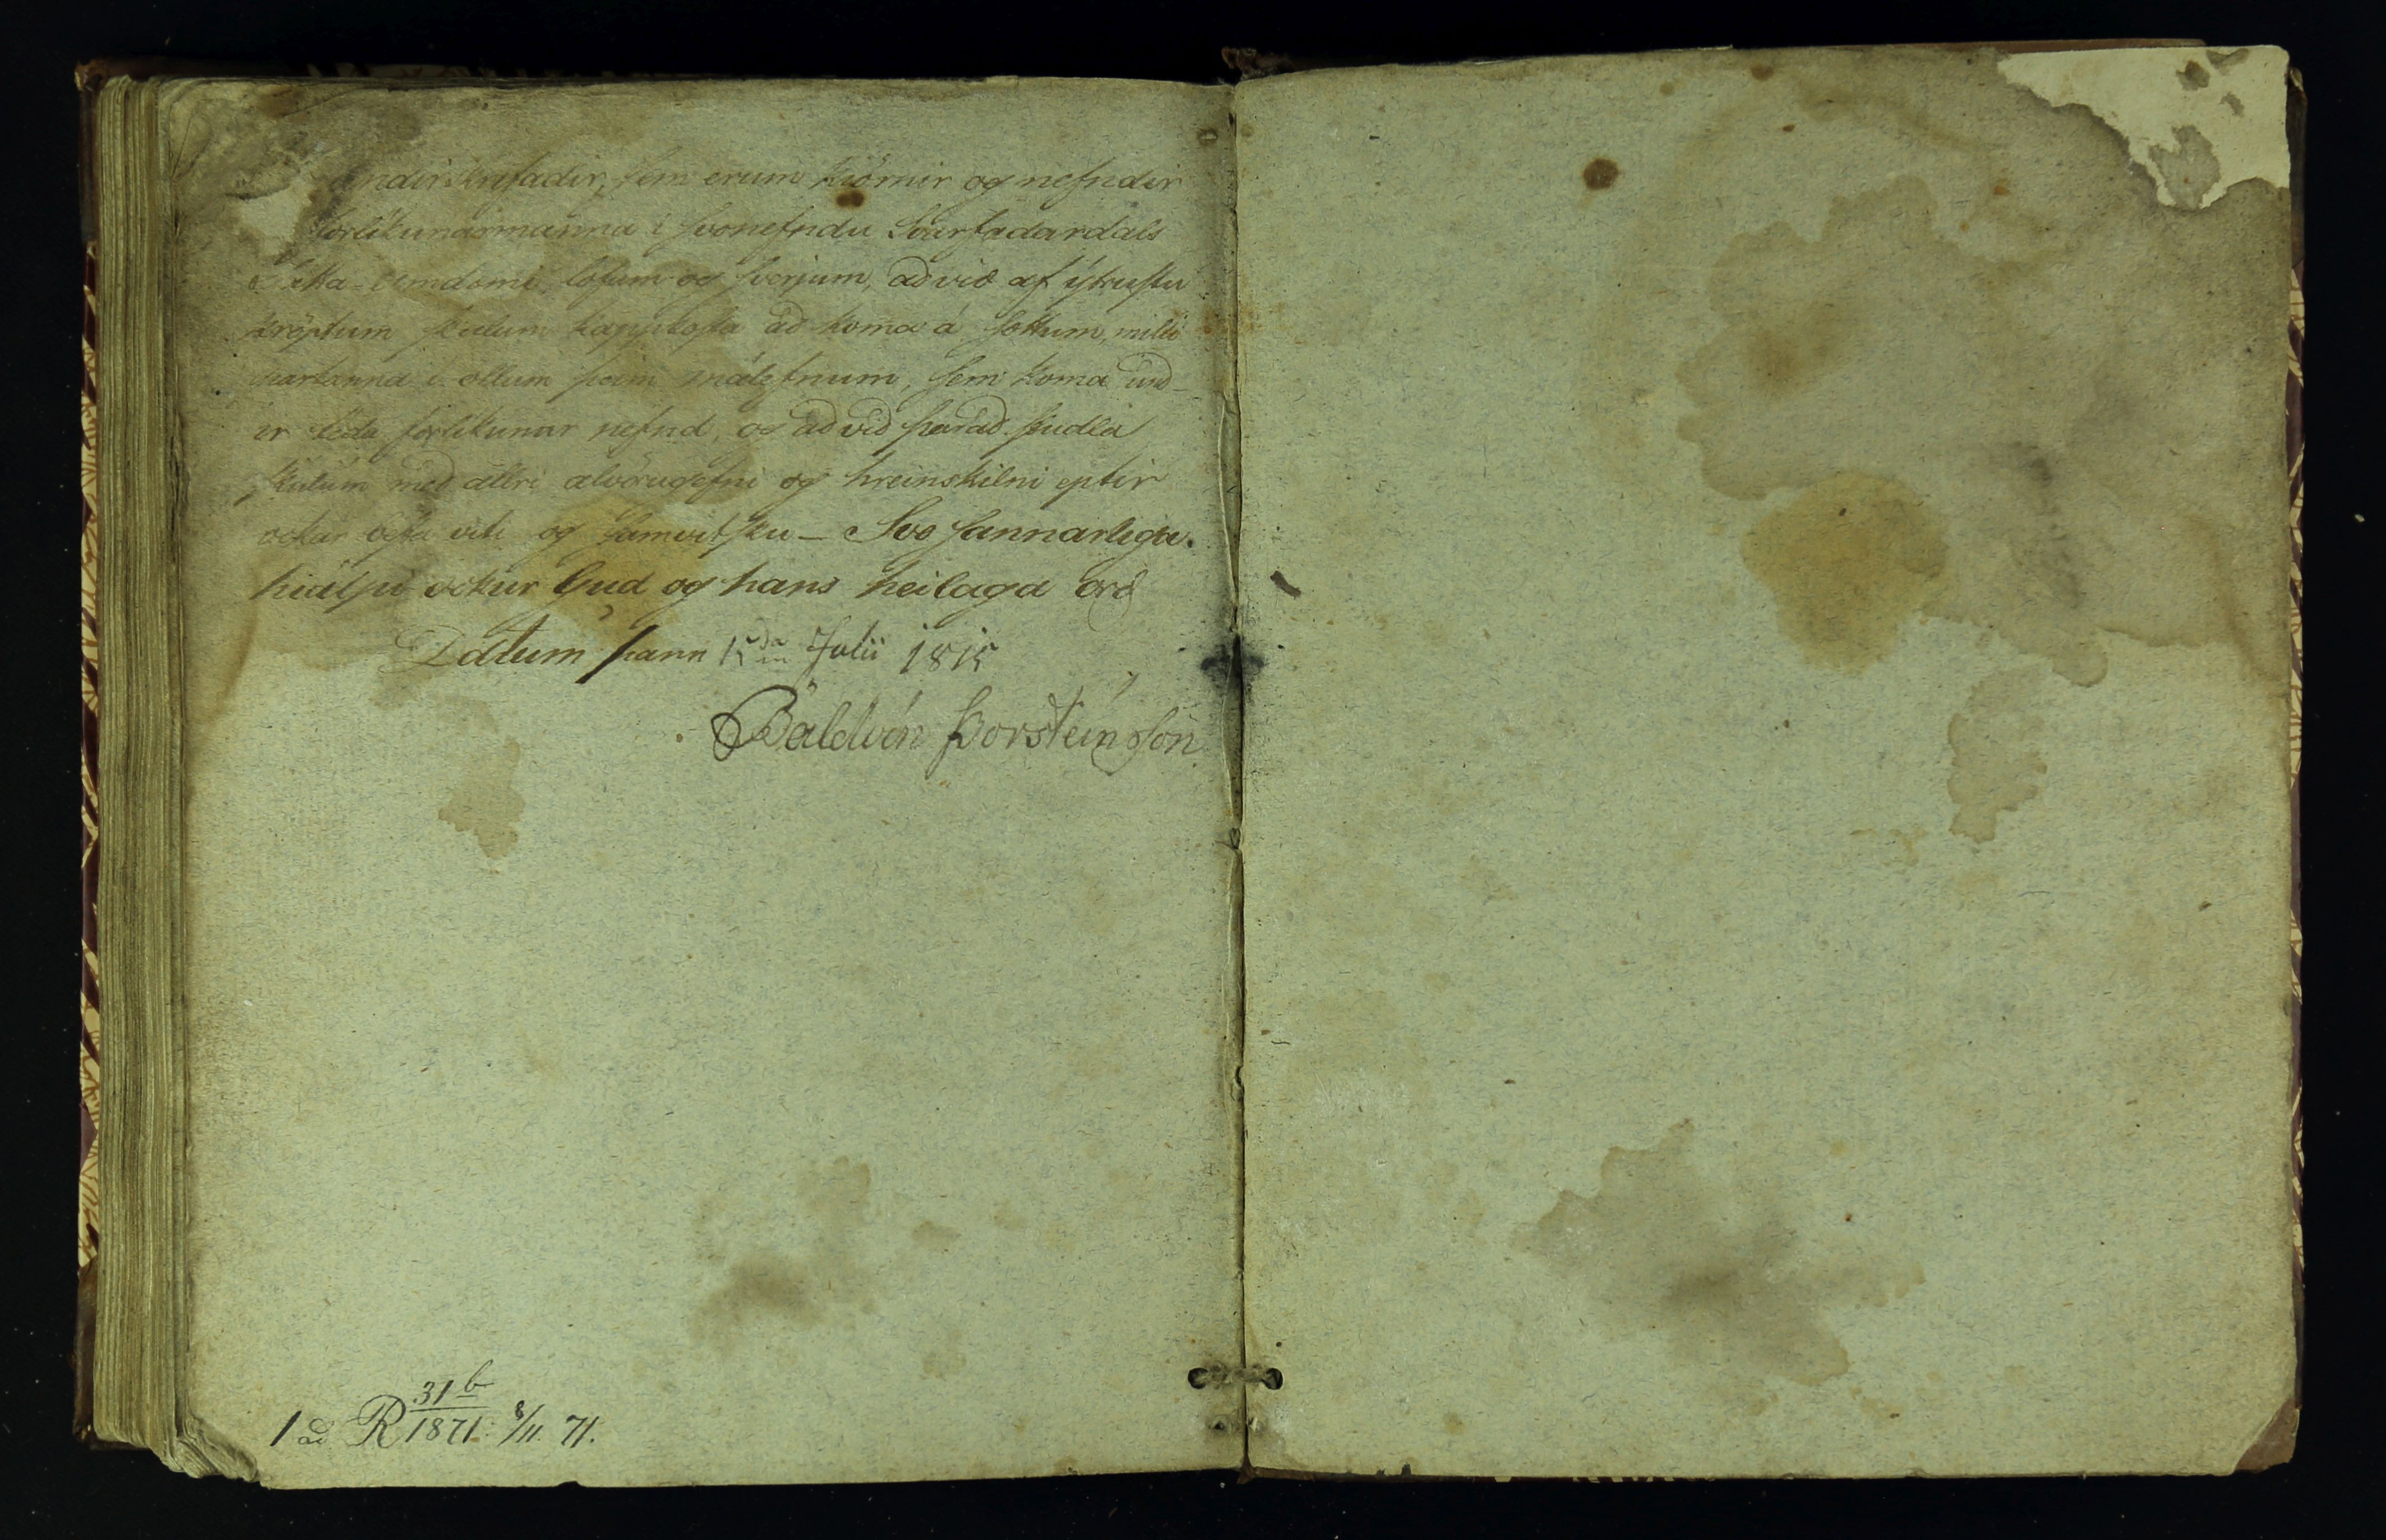 undirskrifadir, sem erum kiörnir og nefndir
forlikunarmanna i svonefndu Svarfadardals
Sátta-umdæmi, lofum og sverjum, að við af ýtrustu
kröptum skulum kappkosta að koma á sáttum, milli
partanna i öllum þeim málefnum, sem koma und-
ir téda forlikunar nefnd, og að við þarað studla
skulum með allri alvörugefni og hreinskilni eptir
ockar besta viti og samvitsku – Svo sannarlega
hiálpi ockur Gud og hans heilaga orð
Datum þann 15da Julii 1815
Baldvin Þorsteinsson
31 b
1 ad R 1871. 8/11 71.